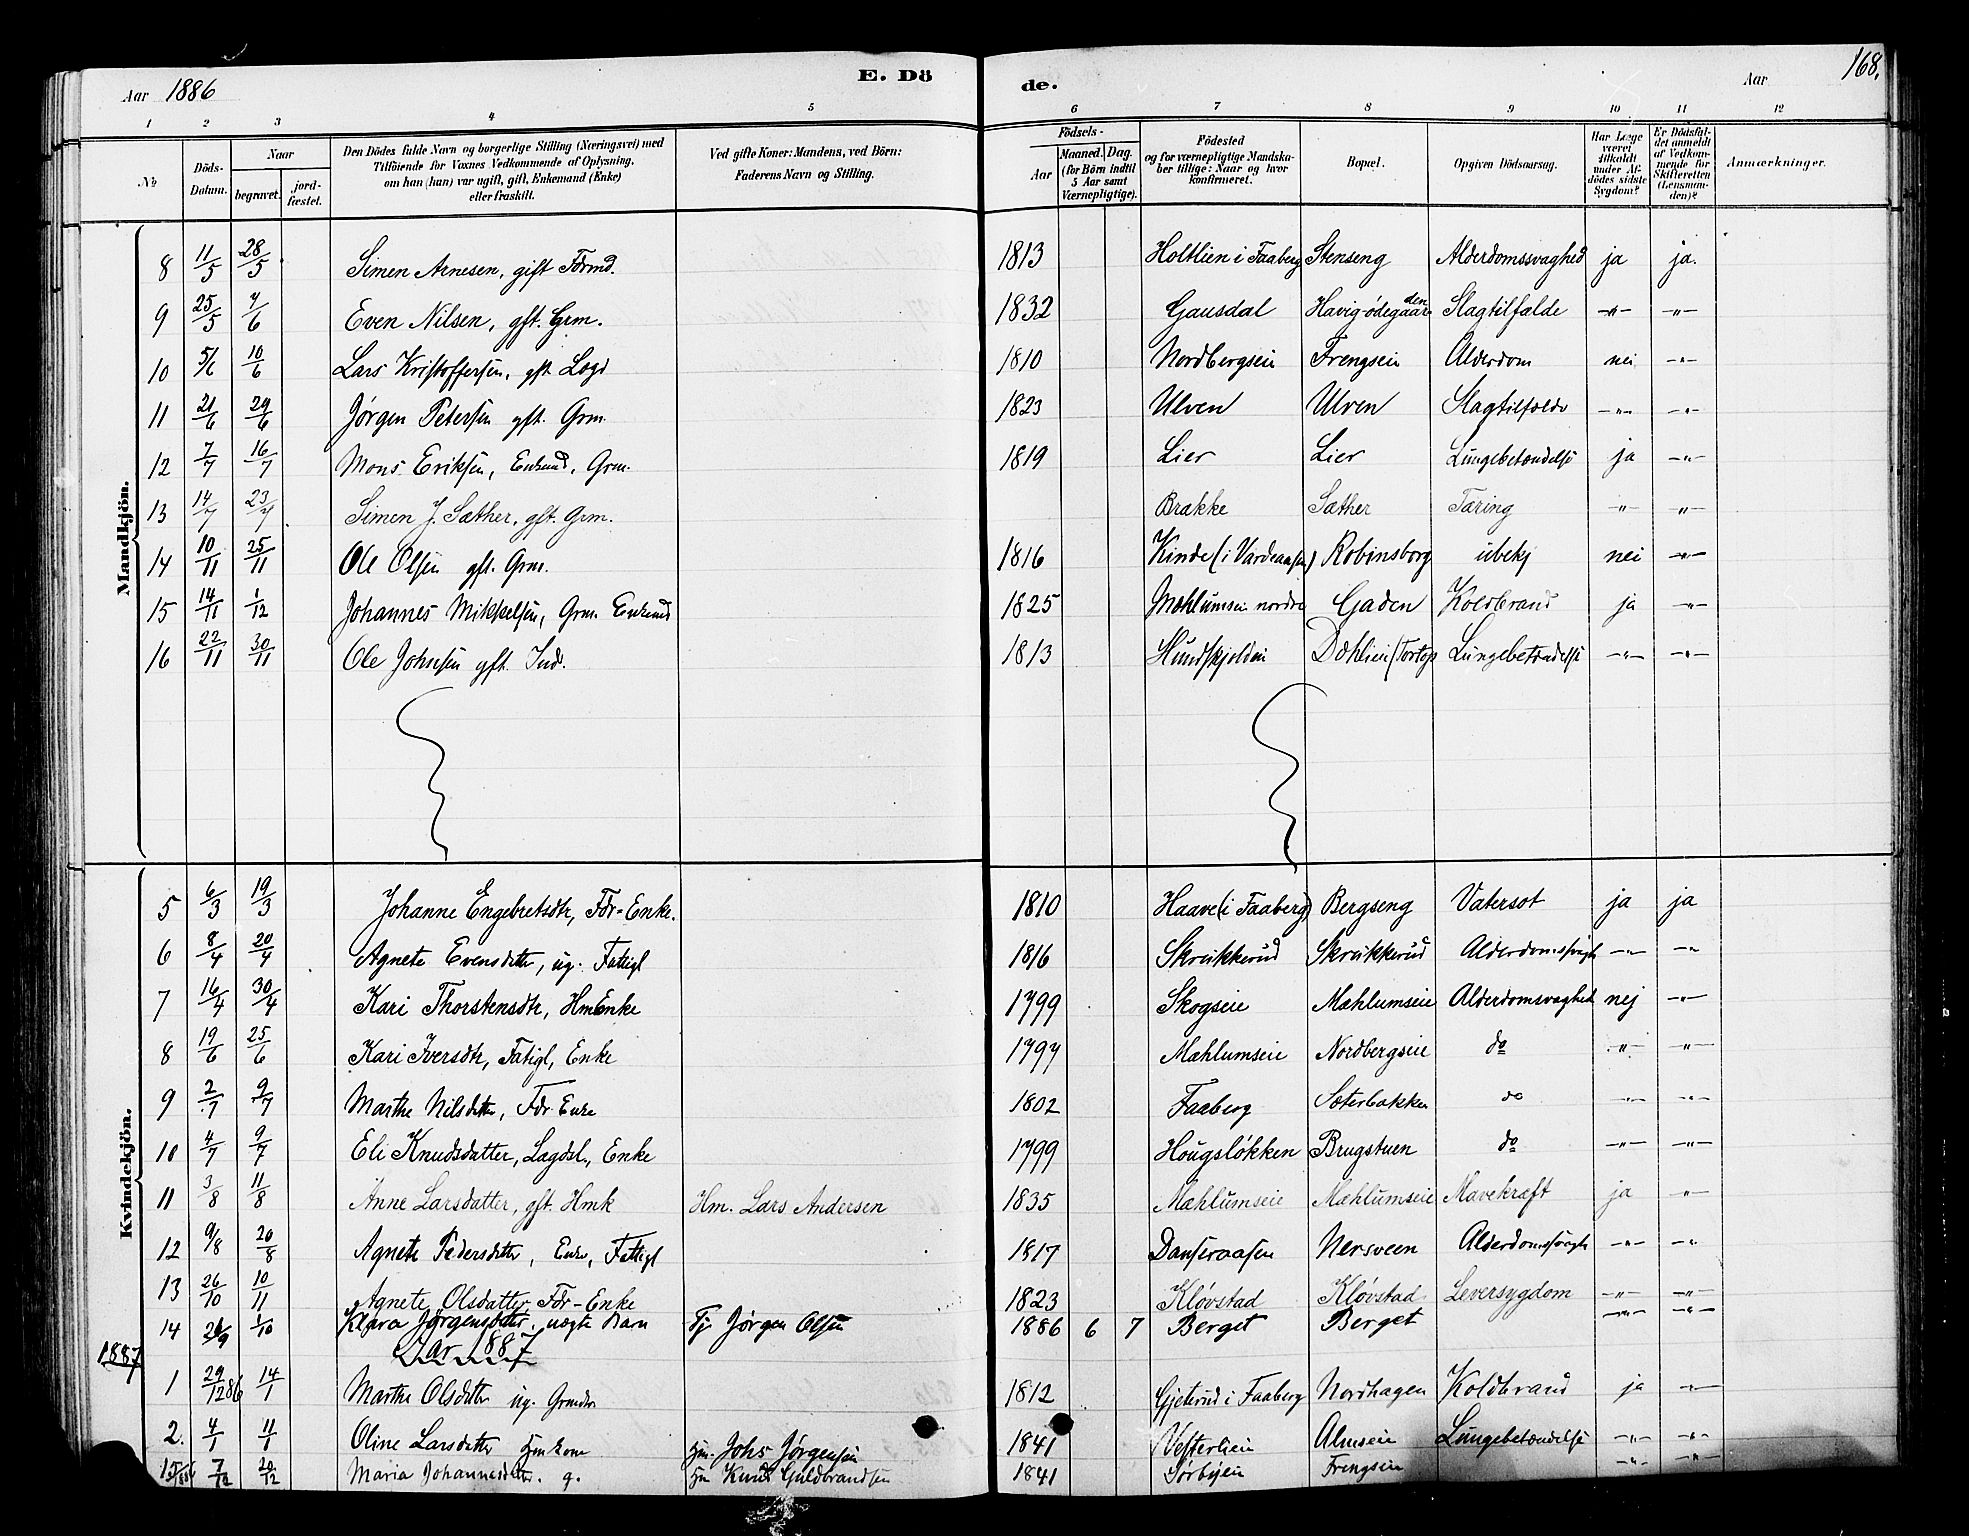 Aar 1886 E. Dö de. Aar 168.
1 2 3 4 5 6 7 8 9 10 11 12
№ Döds-Datum. Naar begravet. jordfæstet. Den Dödes fulde Navn og borgerlige Stilling (Næringsvei) med Tilföiende for Voxnes Vedkommende af Oplysning, om han (hun) var ugift, gift, Enkemand (Enke) eller fraskilt. Ved gifte Koner: Mandens, ved Börn: Faderens Navn og Stilling. Födsels- Aar Maaned. Dag. (for Börn indtil 5 Aar samt Værnepligtige). Födested og for værnepligtige Mandskaber tillige: Naar og hvor konfirmeret. Bopæl. Opgiven Dödsaarsag. Har Læge været tilkaldt under Afdödes sidste Sygdom? Er Dödsfaldet anmeldt af Vedkommende for Skifteretten (Lensmanden)? Anmærkninger.
Mandkjön.
8 11/5 28/5 Simen Arnesen, gift Fdrmd. 1813 Holtlien i Faaberg Stenseng Alderdomssvaghed ja ja.
9 25/5 4/6 Even Nilsen, gft. Grm. 1832 Gausdal Havig-ødegaarden Slagtilfælde -"- -"-
10 5/6 10/6 Lars Kristoffersen, gft Logd 1810 Nordbergseie Frengseie Alderdom nei -"-
11 21/6 29/6 Jørgen Petersen gft. Grm. 1823 Ulven Ulven Slagtilfælde -"- -"-
12 7/7 16/7 Mons Eriksen, Enkemd, Grm. 1819 Lier Lier Lungebetændelse ja -"-
13 14/7 23/7 Simen J. Sæther, gft. Grm. Brække Sæther Tæring -"- -"-
14 10/11 25/11 Ole Olsen gft. Grm. 1816 Kinde (i Vardeaasen) Robinsborg ubekj nei -"-
15 14/11 1/12 Johannes Mikkelsen, Grm. Enkemd 1825 Mæhlumseie nordre Gaden Koldbrand ja -"-
16 22/11 30/11 Ole Johnsen gft. Ind. 1813 Hundskjolden Døhlien (Tortop Lungebetændelse -"- -"-
Kvindekjön.
5 6/3 19/3 Johanne Engebretsdtr, Fdr-Enke. 1810 Haave (i Faaberg) Bergseng Vatersot ja ja
6 8/4 20/4 Agnete Evensdatter, ug. Fattigl 1816 Skreikkerud Skreikkerud Alderdomssvagh -"- -"-
7 16/4 30/4 Kari Thorstensdtr, Hm Enke 1799 Skogseie Mæhlumseie Alderdomsvaghet nej -"-
8 19/6 25/6 Kari Iversdtr, Fatigl, Enke 1797 Mæhlumseie Nordbergseie do -"- -"-
9 2/7 9/7 Marthe Nilsdatter, Fdr Enke 1802 Faaberg Sæterbakken do -"- -"-
10 4/7 9/7 Eli Knudsdatter, Lagdsl., Enke 1799 Hougsløkken Brugstuen do -"- -"-
11 3/8 11/8 Anne Larsdatter, gft. Hmk Hm. Lars Andersen 1835 Mæhlumseie Mæhlumseie Mavekræft ja -"-
12 9/8 20/8 Agnete Pedersdatter, Enke, Fattigl 1817 Danseraasen Nersveen Alderdomssvagh -"- -"-
13 26/10 10/11 Agnete Olsdatter Fdr-Enke 1823 Kløvstad Kløvstad Leversygdom -"- -"-
14 1/10 Klara Jørgensdatter. uægte Barn Jørgen Olsen 1886 6 7 Berget Berget -"- -"-
1887 Aar 1887
1 29/12 86 14/1 Marthe Olsdatter ug. 1812 Gjeterud i Faaberg Nordhagen Koldbrand ja -"-
2. 4/1 11/1 Oline Larsdatter Hmkone Hm. Johs Jørgensen 1841 Vesterlien Almseie Lungebetændelse -"- -"-
15 7/12 20/12 Maria Johannesdatter. g. Hm Knud Guldbrandsen 1841 Sørbyeie Frengseie -"- -"-